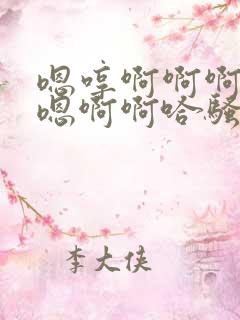 嗯哼啊啊啊
嗯啊啊哈骚
李大侠